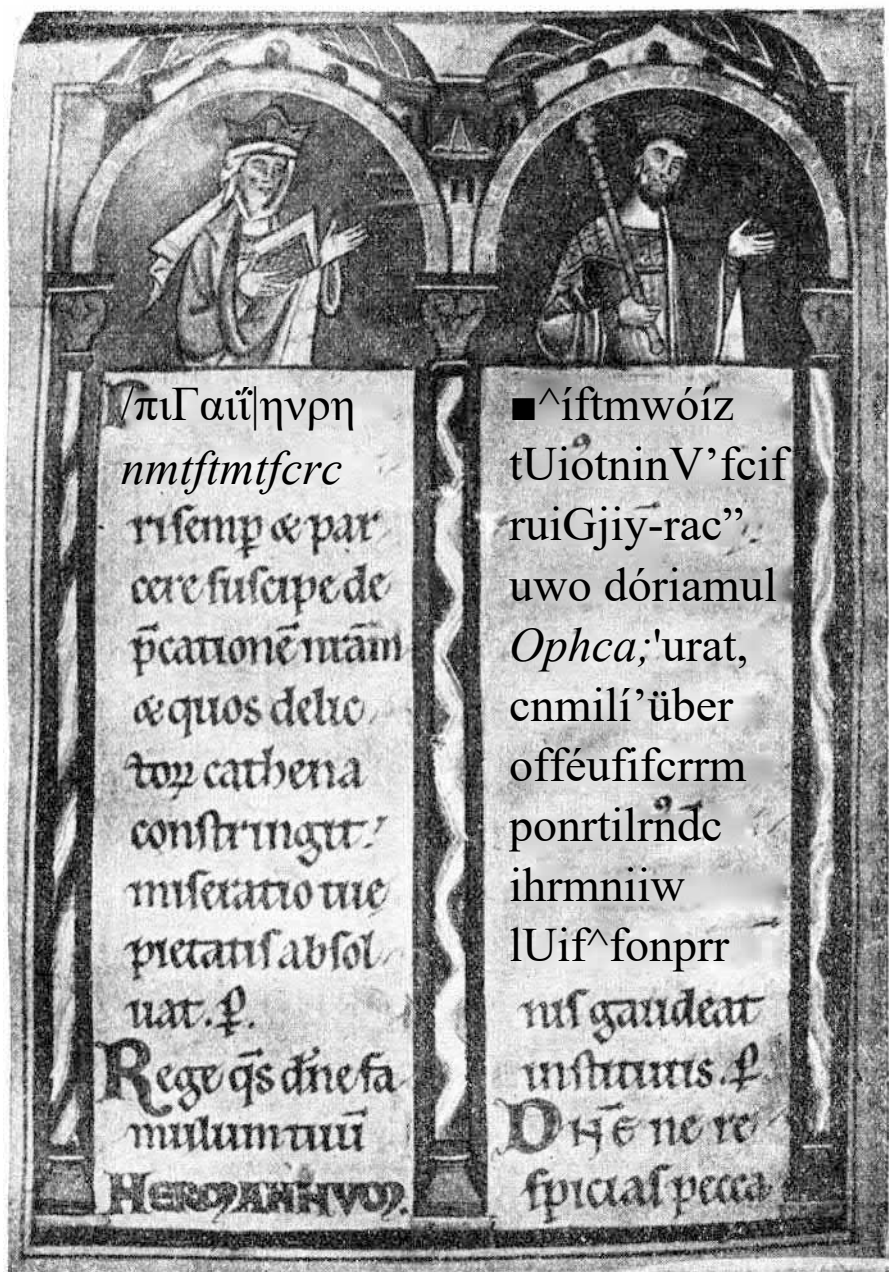 /πιΓαιΐ|ηνρη
nmtftmtfcrc
riſemp̄ & par
cere ſuſcipe de
p̄cationē nr̄am
& quos delic
toꝝ cathena
conſtringit:
miſeratio tue
pietatiſ abſol
uat. P̄.
Rege qs̄ dn̄e fa
mulum tuū
HERMANNVM.
■^íftmwóíz
tUiotninV’fcif
ruiGjiy-rac”
uwo dóriamul
Ophca;'urat,
cnmilí’über
offéufifcrrm
ponrtilrndc
ihrmniiw
lUif^fonprr
niſ gaudeat
inſtitutis. P̄
DN̄E ne re
ſpiciaſ pecca